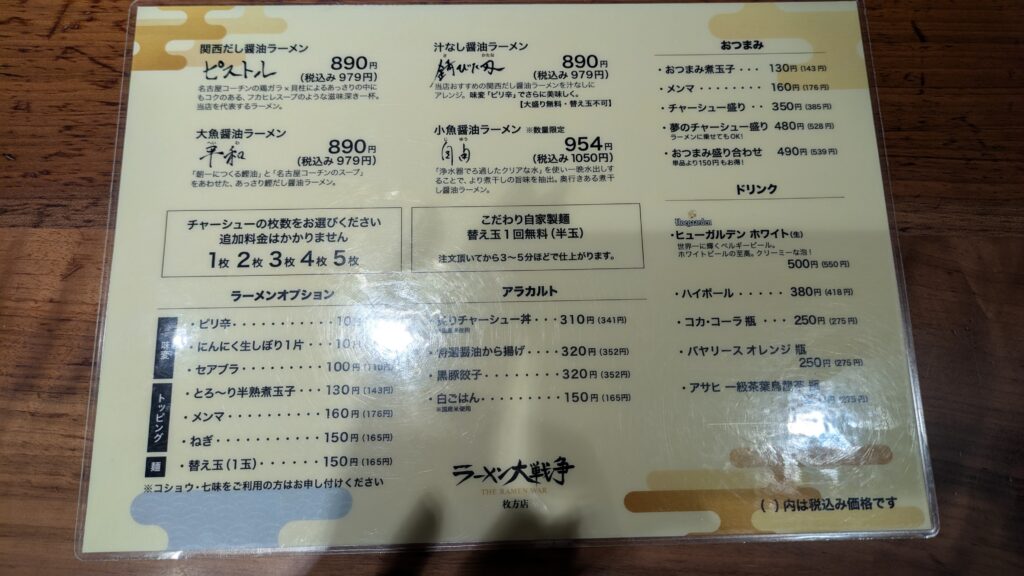 関西だし醤油ラーメン
ピストル
890円
(税込み 979円)
名古屋コーチンの鶏ガラ×貝柱によるあっさりの中
にもコクのある、フカヒレスープのような滋味深き一杯。
当店を代表するラーメン。
汁なし醤油ラーメン
錆びた刀
890円
(税込み 979円)
当店おすすめの関西だし醤油ラーメンを汁なしに
アレンジ。味変「ピリ辛」でさらに美味しく。
【大盛り無料・替え玉不可】
大魚醤油ラーメン
平和
890円
(税込み 979円)
「朝一につくる鰹油」と「名古屋コーチンのスープ」
をあわせた、あっさり鰹だし醤油ラーメン。
小魚醤油ラーメン ※数量限定
自由
954円
(税込み 1050円)
「浄水器でろ過したクリアな水」を使い一晩水出しす
ることで、より煮干しの旨味を抽出。奥行きある煮干
し醤油ラーメン。
チャーシューの枚数をお選びください
追加料金はかかりません
1枚 2枚 3枚 4枚 5枚
こだわり自家製麺
替え玉1回無料(半玉)
注文頂いてから3〜5分ほどで仕上がります。
ラーメンオプション
味変
・ピリ辛・・・・・・・・・・・10
・にんにく生しぼり1片・・・・10
・セアブラ・・・・・・・・・100円(110円)
トッピング
・とろ〜り半熟煮玉子・・・・130円(143円)
・メンマ・・・・・・・・・・160円(176円)
・ねぎ・・・・・・・・・・・150円(165円)
麺
・替え玉(1玉)・・・・・・・150円(165円)
※コショウ・七味をご利用の方はお申し付けください
アラカルト
炙りチャーシュー丼・・・310円(341円)
特選醤油から揚げ・・・・320円(352円)
・黒豚餃子・・・・・・・320円(352円)
・白ごはん・・・・・・・150円(165円)
※国産米使用
ラーメン大戦争
THE RAMEN WAR
枚方店
おつまみ
・おつまみ煮玉子・・・130円(143円)
・メンマ・・・・・・・160円(176円)
・チャーシュー盛り・・350円(385円)
・夢のチャーシュー盛り 480円(528円)
ラーメンに乗せてもOK!
・おつまみ盛り合わせ 490円(539円)
単品より150円もお得!
ドリンク
Hoegaarden
・ヒューガルデン ホワイト(生)
世界一に輝くベルギービール。
ホワイトビールの至高。クリーミーな泡!
500円(550円)
・ハイボール・・・・・380円(418円)
・コカ・コーラ 瓶・・・250円(275円)
・バヤリース オレンジ 瓶
250円(275円)
・アサヒ 一級茶葉烏龍茶 瓶
275円)
( )内は税込み価格です